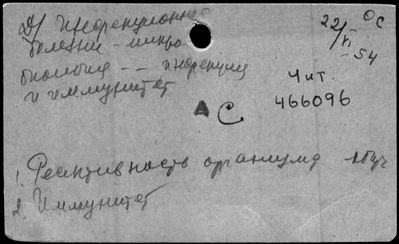 Д/ инфекционные
болезни - микро
биология - - инфекция
и иммунитет
ОС
22/XI-54
Чит.
466096
А С
1. Реактивность организма
2. Иммунитет